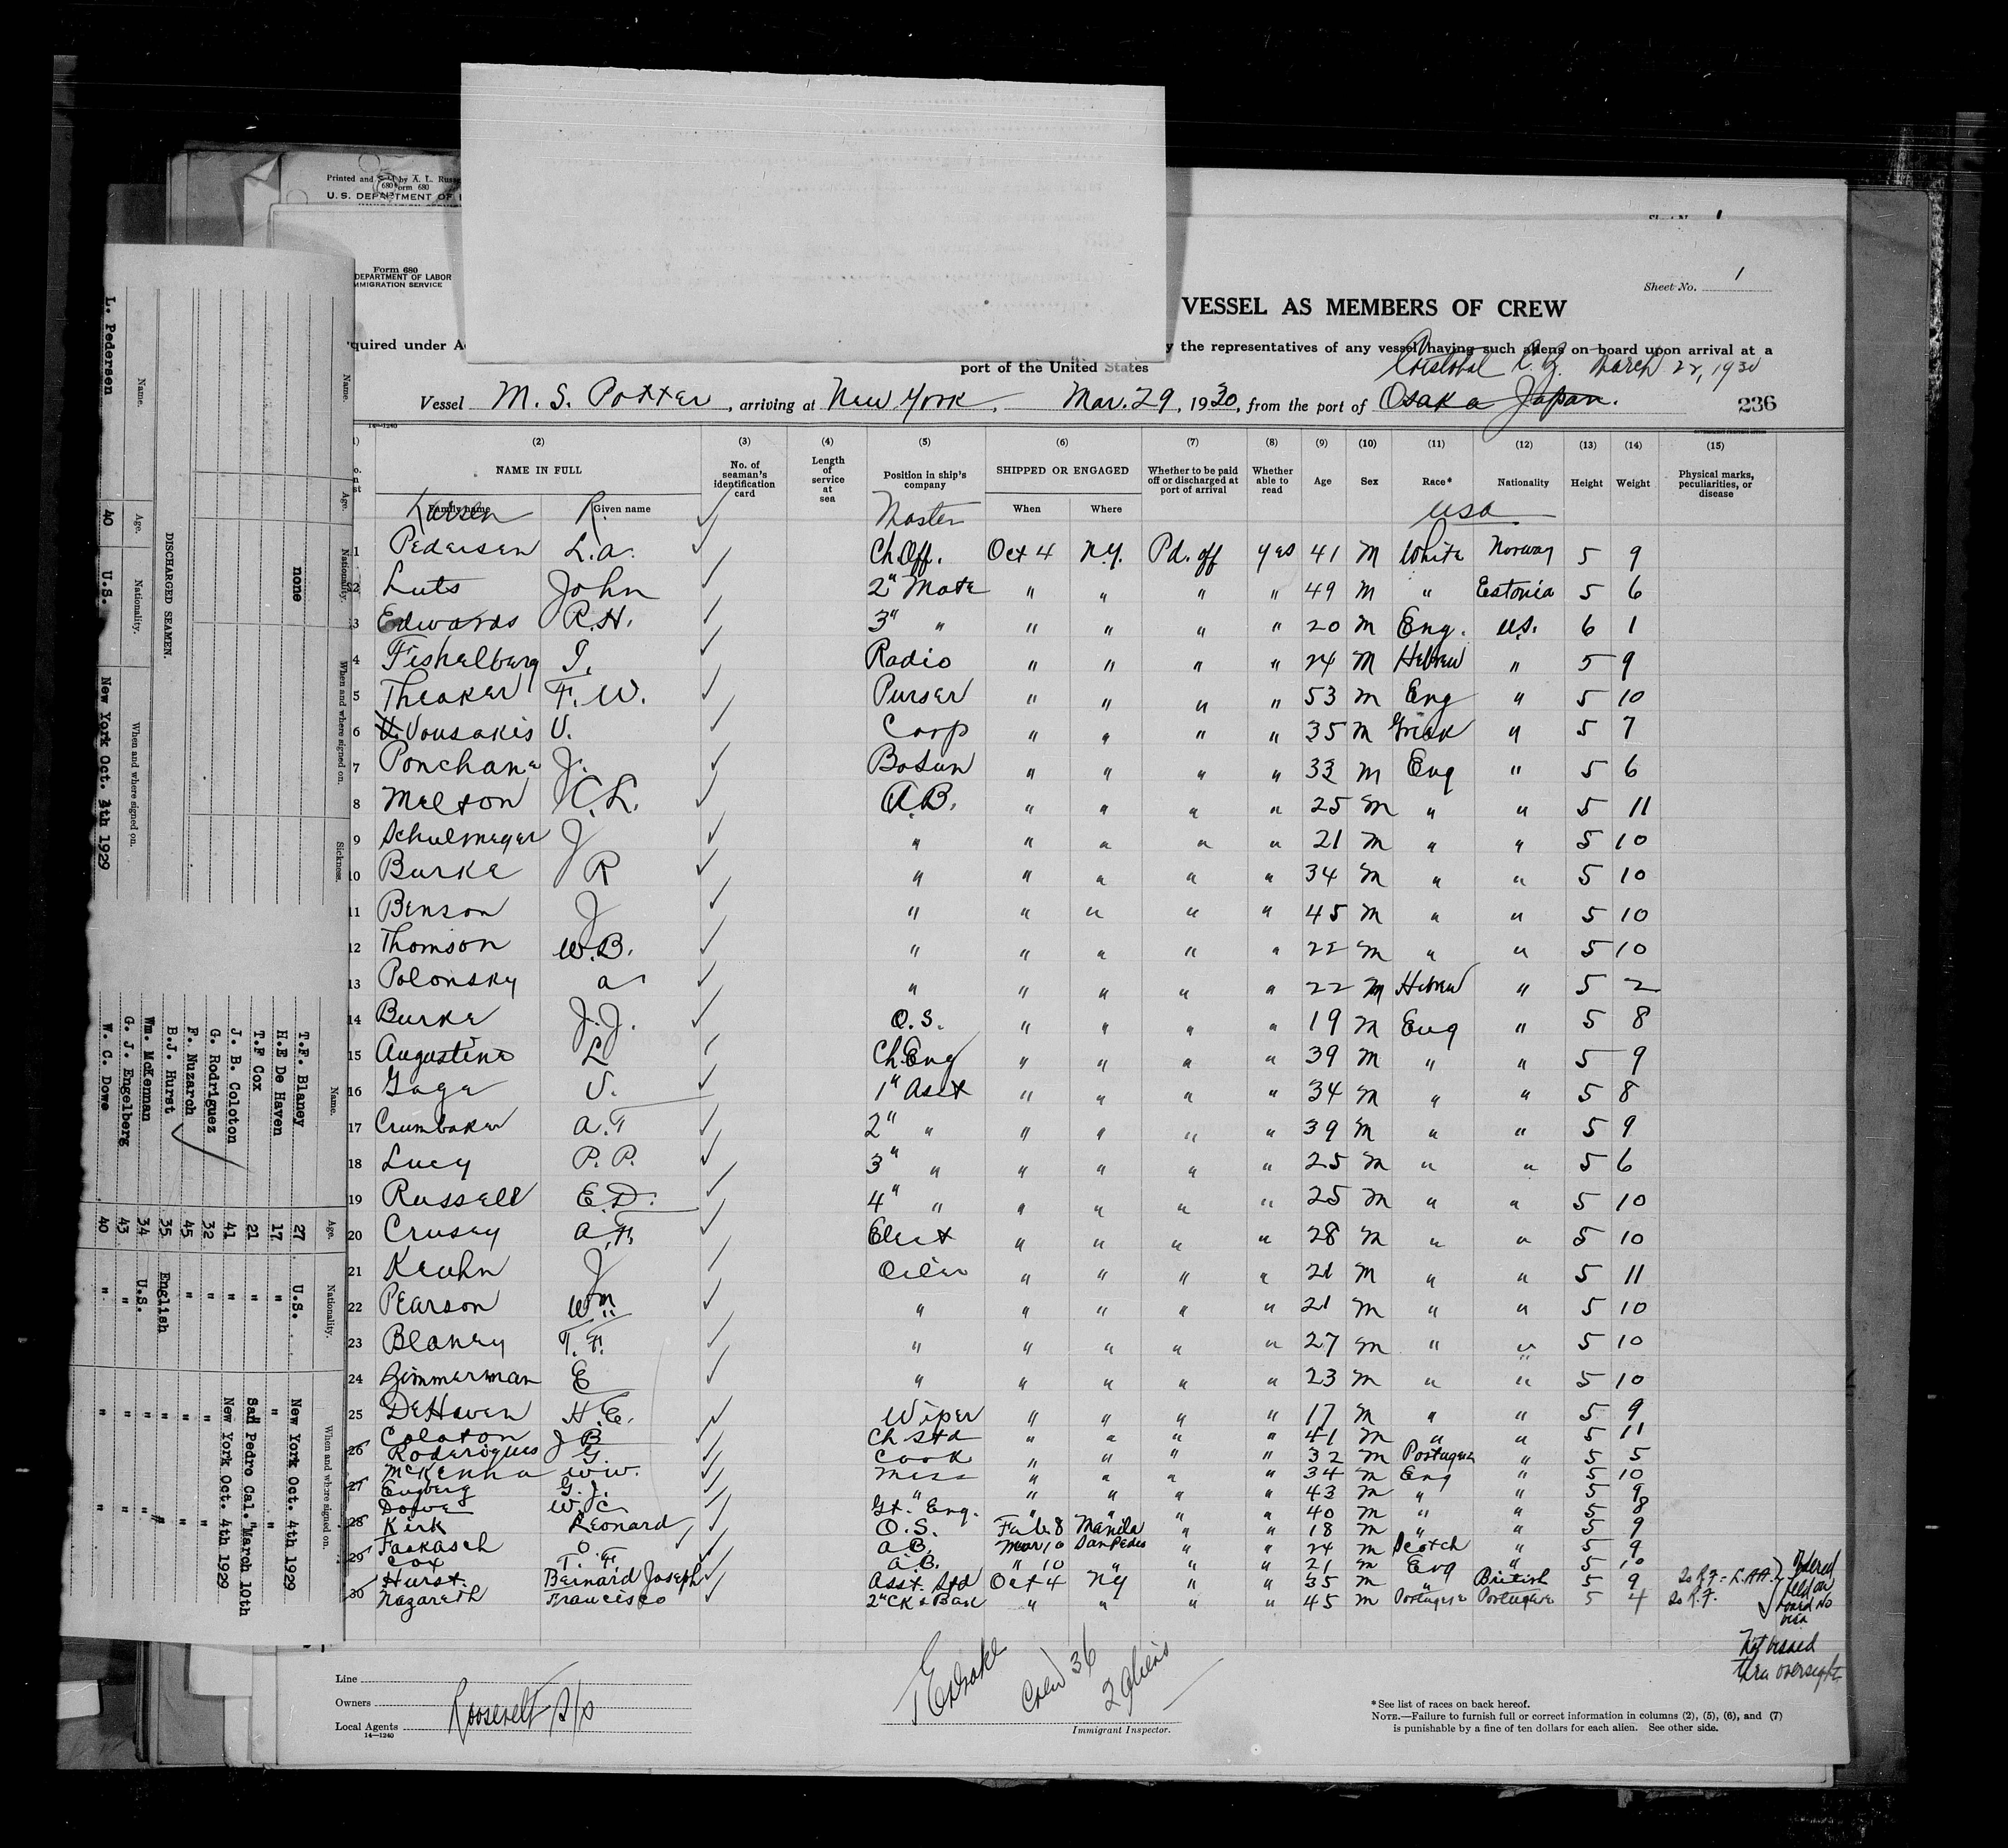 Printed and Sold by A. L. Russe
680 Form 680
U. S. DEPARTMENT OF L
1
Form 680
DEPARTMENT OF LABOR
MMIGRATION SERVICE
Sheet No. 1
VESSEL AS MEMBERS OF CREW
quired under A
y the representatives of any vessel having such aliens on board upon arrival at a
port of the United States
Cristobal C. Z. March 22, 1930
Vessel M. S. Potter, arriving at New York, Mar. 29, 1930, from the port of Osaka Japan.
236
14-1240
(2) (3) (4) (5) (6) (7) (8) (9) (10) (11) (12) (13) (14) (15)
NAME IN FULL
Family name Given name
No. of seaman's identification card
Length of service at sea
Position in ship's company
SHIPPED OR ENGAGED
When Where
Whether to be paid off or discharged at port of arrival
Whether able to read
Age Sex Race* Nationality Height Weight
Physical marks, peculiarities, or disease
Larsen R. Master USA
1 Pedersen L.A. Ch Off. Oct 4 N.Y. Pd. off yes 41 M White Norway 5 9
2 Luts John 2" Mate " " " " 49 M " Estonia 5 6
3 Edwards R.H. 3" " " " " " 20 M Eng. U.S. 6 1
4 Fishelberg I. Radio " " " " 24 M Hebrew " 5 9
5 Theaker F. W. Purser " " " " 53 M Eng " 5 10
6 V. Vousakis V. Carp " " " " 35 M Greek " 5 7
7 Ponchana J. Bosun " " " " 33 M Eng " 5 6
8 Melton C.L. A.B. " " " " 25 M " " 5 11
9 Schulmeyer J " " " " " 21 M " " 5 10
10 Burke R " " " " " 34 M " " 5 10
11 Benson J " " " " " 45 M " " 5 10
12 Thomson W.B. " " " " " 22 M " " 5 10
13 Polonsky A " " " " " 22 M Hebrew " 5 2
14 Burke J.J. O.S. " " " " 19 M Eng " 5 8
15 Augustine L Ch Eng " " " " 39 M " " 5 9
16 Gage V. 1" Asst " " " " 34 M " " 5 8
17 Crumbaker A.T 2" " " " " " 39 M " " 5 9
18 Lucy P. P. 3" " " " " " 25 M " " 5 6
19 Russell E.D. 4" " " " " " 25 M " " 5 10
20 Crusey A.F. Elect " " " " 28 M " " 5 10
21 Keuhn J Oiler " " " " 21 M " " 5 11
22 Pearson Wm " " " " " 21 M " " 5 10
23 Blaney T. F. " " " " " 27 M " " 5 10
24 Zimmerman E " " " " " 23 M " " 5 10
25 DeHaven H.E. Wiper " " " " 17 M " " 5 9
Coloton J B Ch Std " " " " 41 M " " 5 11
26 Roderigues G. Cook " " " " 32 M Portuguese " 5 5
McKenna W.W. Mess " " " " 34 M Eng " 5 10
27 Engberg G. J. " " " " " 43 M " " 5 9
Dowe W. C. St. Eng. " " " " 40 M " " 5 8
28 Kirk Leonard O.S. Feb 8 Manila " " 18 M " " 5 9
Faskasch O A.B. Mar 10 San Pedro " " 24 M Scotch " 5 9
29 Cox T. F. A.B. " 10 " " " 21 M Eng " 5 10
Hurst Bernard Joseph Asst. Std Oct 4 NY " " 35 M " British 5 9
30 Nazareth Francisco 2" Ck & Bak " " " " 45 M Portugese Portugese 5 4
Ordered held on board no visa
Not visaed thru oversight
Line
Owners
Local Agents
14-1240
Roosevelt S/S
Crew 36
2 Aliens
Immigrant Inspector.
*See list of races on back hereof.
NOTE.—Failure to furnish full or correct information in columns (2), (5), (6), and (7)
is punishable by a fine of ten dollars for each alien. See other side.
Name. Age. Nationality. When and where signed on. Sickness.
none
DISCHARGED SEAMEN.
Name. Age. Nationality. When and where signed on.
L. Pedersen 40 U.S. New York Oct. 4th 1929
Name. Age. Nationality. When and where signed on.
T.F. Blaney 27 U.S. New York Oct. 4th 1929
H.E De Haven 17 " " "
T.F Cox 21 " San Pedro Cal. March 10th
J. B. Coloton 41 " New York Oct. 4th 1929
G. Rodriguez 32 " " "
F. Nuzarch 45 " " "
B.J. Hurst 35 English " "
Wm. McKennan 34 U.S. " "
G. J. Engelberg 43 " " "
W. C. Dowe 40 " " "